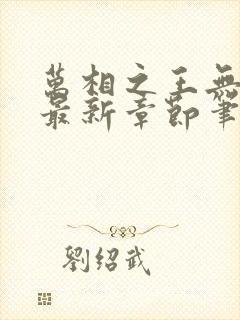 萬相之王無
最新章節筆
劉紹武